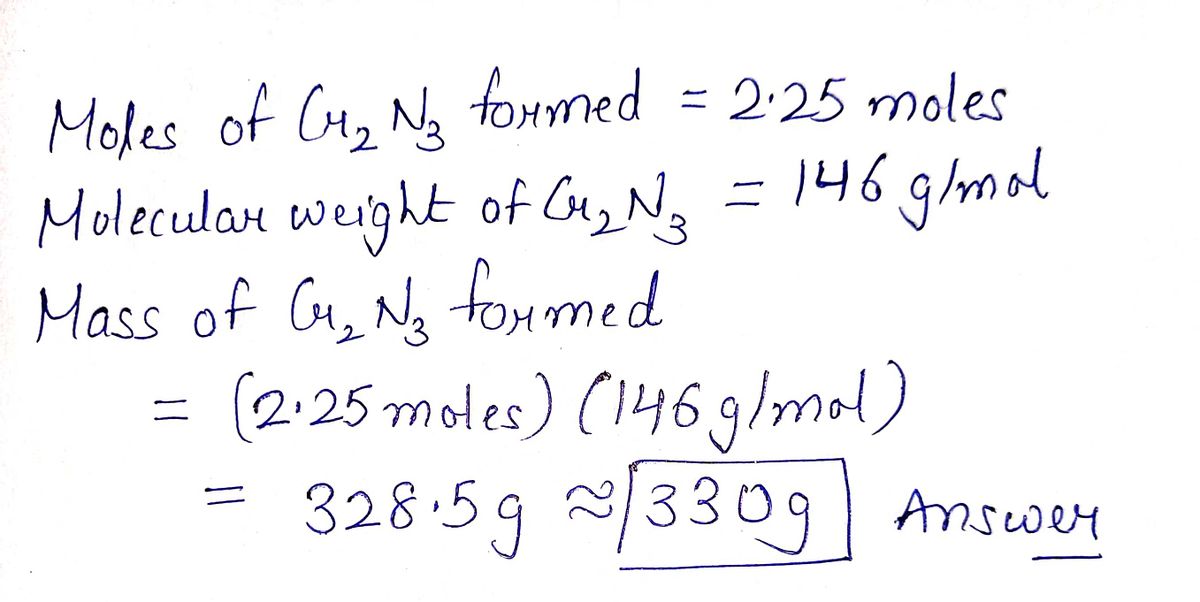 Moles of Cr₂N₃ formed = 2·25 moles
Molecular weight of Cr₂N₃ = 146 g/mol
Mass of Cr₂N₃ formed
= (2·25 moles) (146 g/mol)
= 328·5g ≈ 330g Answer